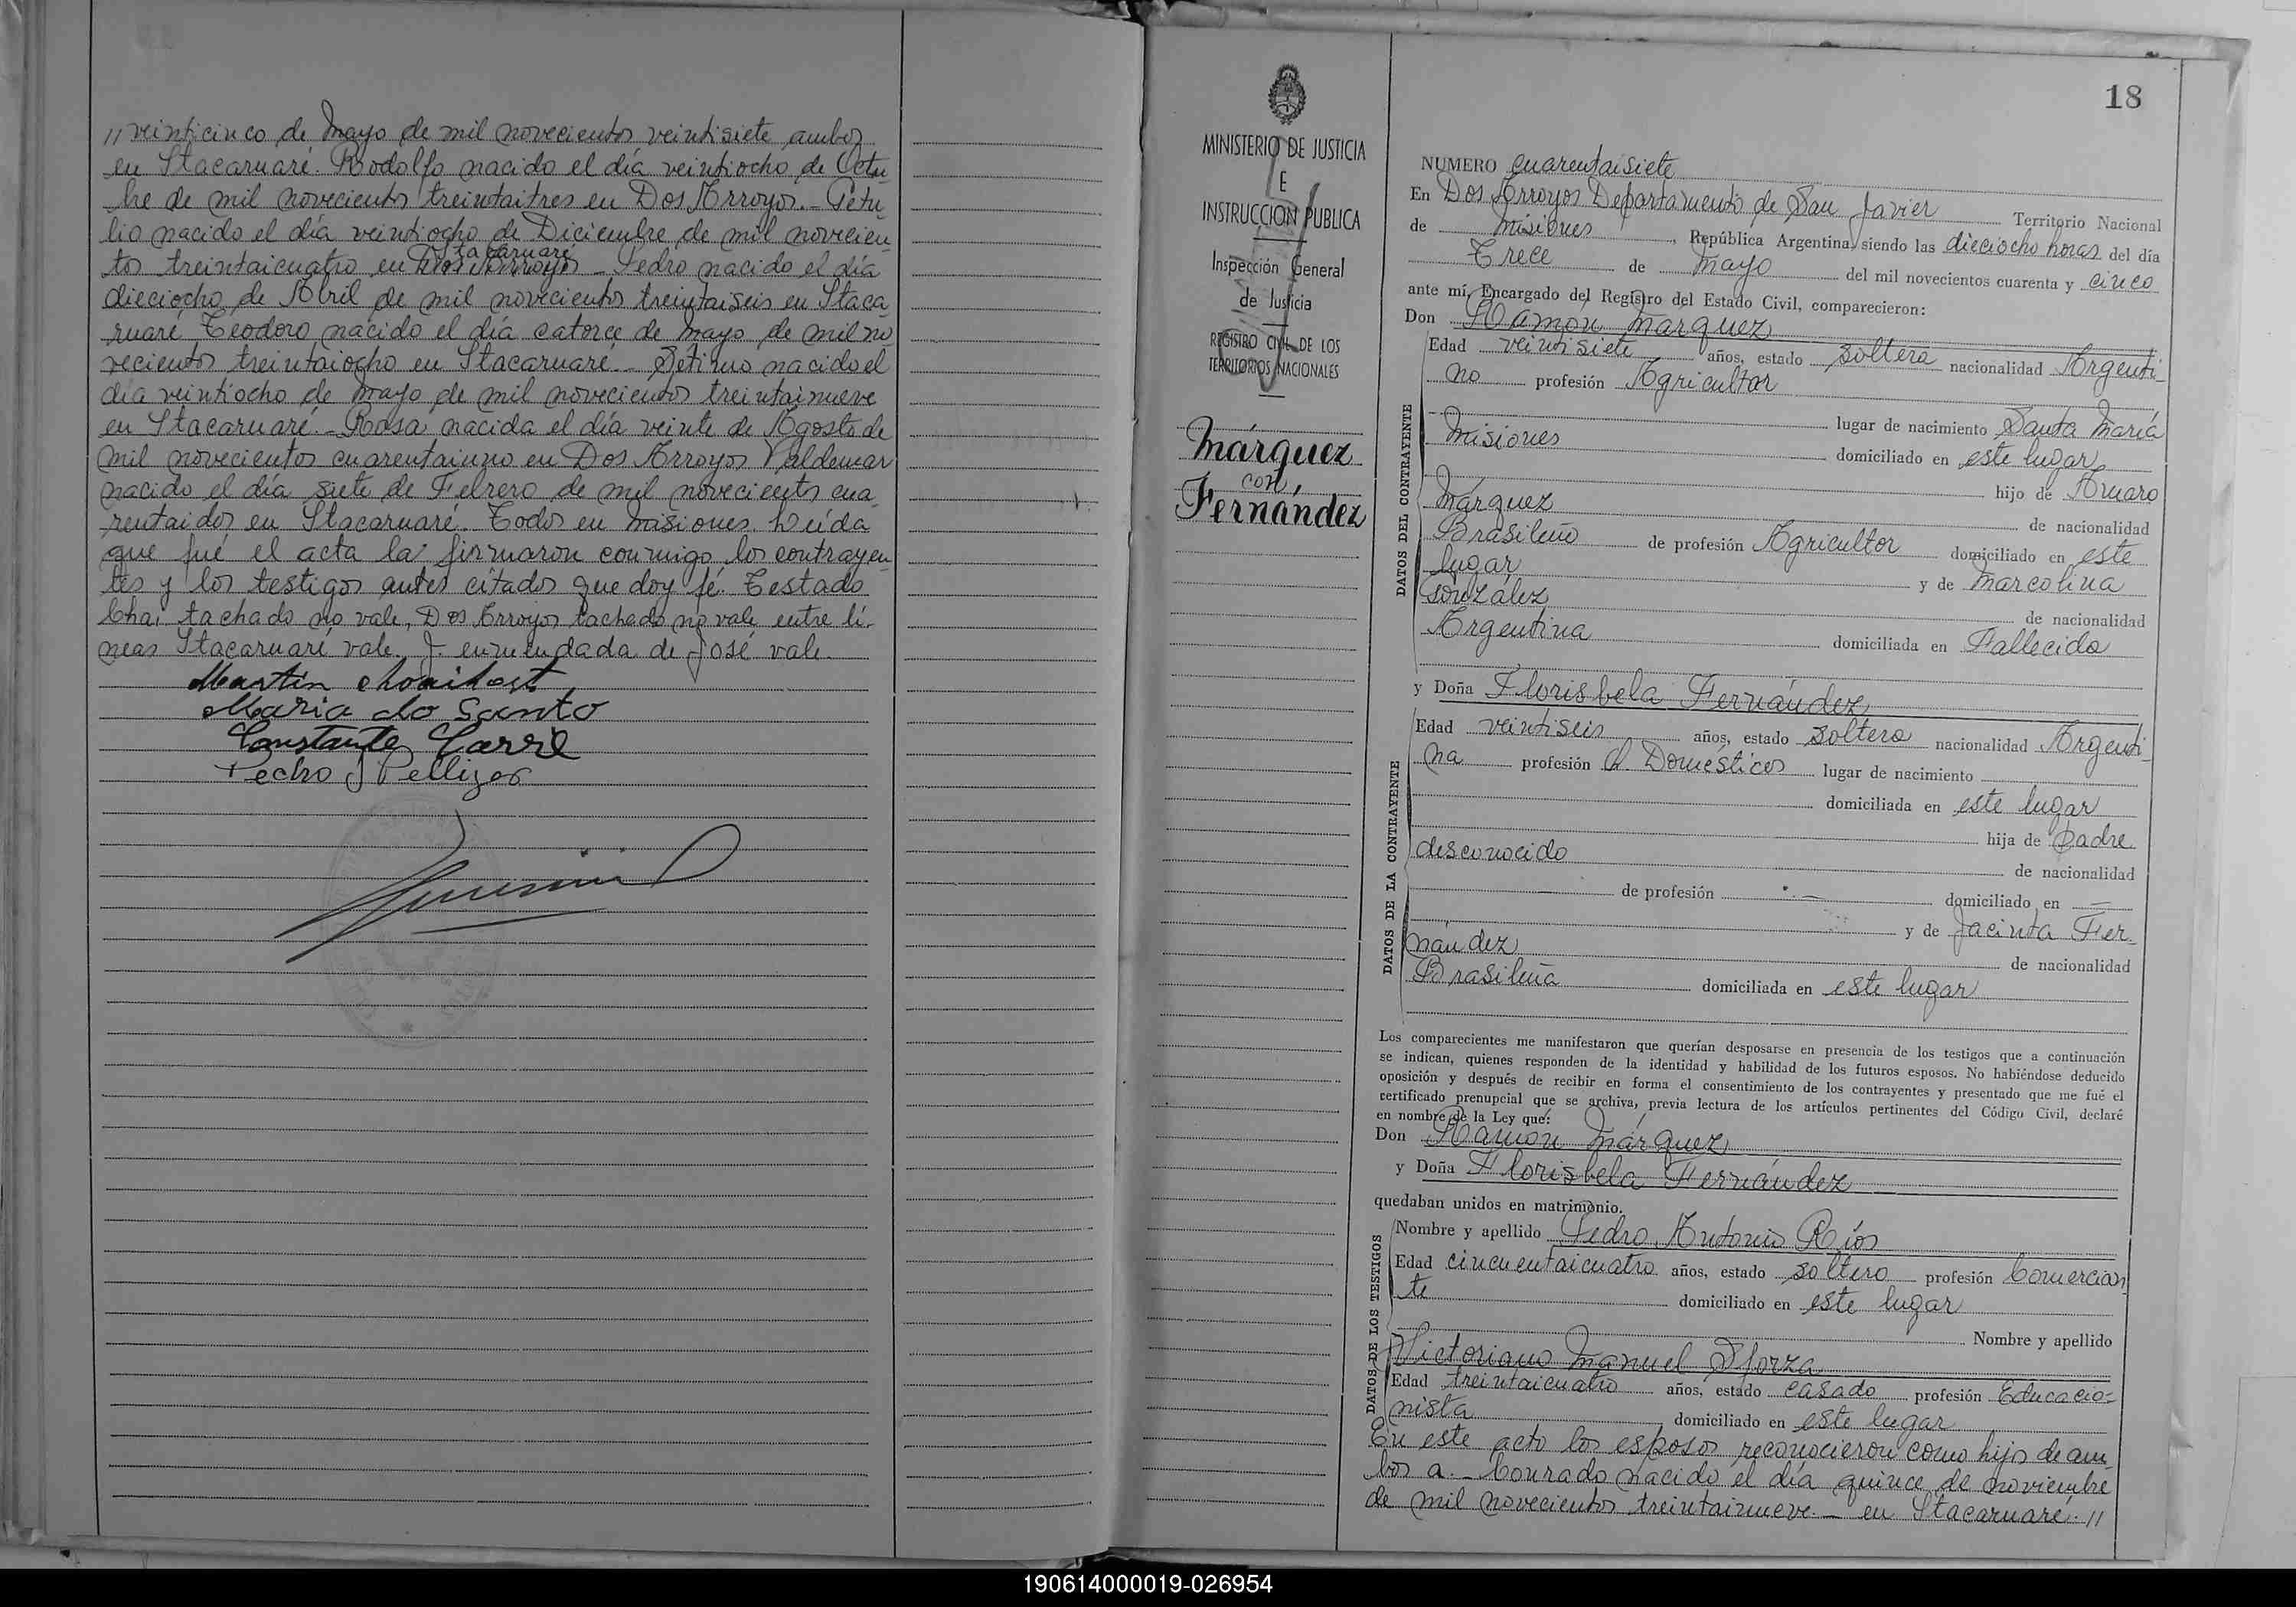 // veinticinco de Mayo de mil novecientos veintisiete ambos
en Itacaruaré. Rodolfo nacido el día veintiocho de Octu
bre de mil novecientos treintaitres en Dos Arroyos.- Getu
lio nacido el día veintiocho de Diciembre de mil novecien
Itacaruaré
tos treintaicuatro en Dos Arroyos - Pedro nacido el día
dieciocho de Abril de mil novecientos treintaiseis en Itaca
ruaré, Teodoro nacido el día catorce de Mayo de mil no
vecientos treintaiocho en Itacaruaré.- Setimo nacido el
día veintiocho de Mayo de mil novecientos treintainueve
en Itacaruaré.- Rosa nacida el día veinte de Agosto de
mil novecientos cuarentaiuno en Dos Arroyos Valdemar
nacido el día siete de Febrero de mil novecients cua
rentaidos en Itacaruaré. Todos en Misiones. Leída
que fué el acta la firmaron conmigo los contrayen
tes y los testigos antes citados que doy fé. Testado
tachado no vale, Dos Arroyos tachado no vale entre lí-
neas Itacaruaré vale. J. enmendada de José vale.
Martin
Maria do Santo
Constante
Pedro J Pellizer
18
MINISTERIO DE JUSTICIA
E
INSTRUCCION PUBLICA
Inspección General
de Justicia
REGISTRO CIVIL DE LOS
TERRITORIOS NACIONALES
Márquez
con
Fernández
NUMERO cuarentaisiete
En Dos Arroyos Departamento de San Javier Territorio Nacional
de Misiones, República Argentina, siendo las dieciocho horas del día
Trece de Mayo del mil novecientos cuarenta y cinco
ante mí, Encargado del Registro del Estado Civil, comparecieron:
Don Ramón Márquez
DATOS DEL CONTRAYENTE
Edad veintisiete años, estado soltero nacionalidad Argenti
no profesión Agricultor
lugar de nacimiento Santa María
Misiones domiciliado en este lugar
hijo de Amaro
Márquez de nacionalidad
Brasileño de profesión Agricultor domiciliado en este
lugar y de Marcolina
González de nacionalidad
Argentina domiciliada en Fallecida
y Doña Florisbela Fernández
DATOS DE LA CONTRAYENTE
Edad veintiseis años, estado soltera nacionalidad Argenti
na profesión Q. Domésticos lugar de nacimiento
domiciliada en este lugar
hija de Padre
desconocido de nacionalidad
de profesión - domiciliado en -
y de Jacinta Fer
nández de nacionalidad
Brasileña domiciliada en este lugar
Los comparecientes me manifestaron que querían desposarse en presencia de los testigos que a continuación
se indican, quienes responden de la identidad y habilidad de los futuros esposos. No habiéndose deducido
oposición y después de recibir en forma el consentimiento de los contrayentes y presentado que me fué el
certificado prenupcial que se archiva, previa lectura de los artículos pertinentes del Código Civil, declaré
en nombre de la Ley que:
Don Ramón Márquez
y Doña Florisbela Fernández
quedaban unidos en matrimonio.
DATOS DE LOS TESTIGOS
Nombre y apellido Pedro Antonio Ríos
Edad cincuentaicuatro años, estado soltero profesión Comercian
te domiciliado en este lugar
Nombre y apellido
Victoriano Manuel Sforza
Edad treintaicuatro años, estado casado profesión Educacio-
nista domiciliado en este lugar
En este acto los esposos reconocieron como hijo de am
bos a.- Conrado nacido el día quince de noviembre
de mil novecientos treintainueve.- en Itacaruaré. //
190614000019-026954